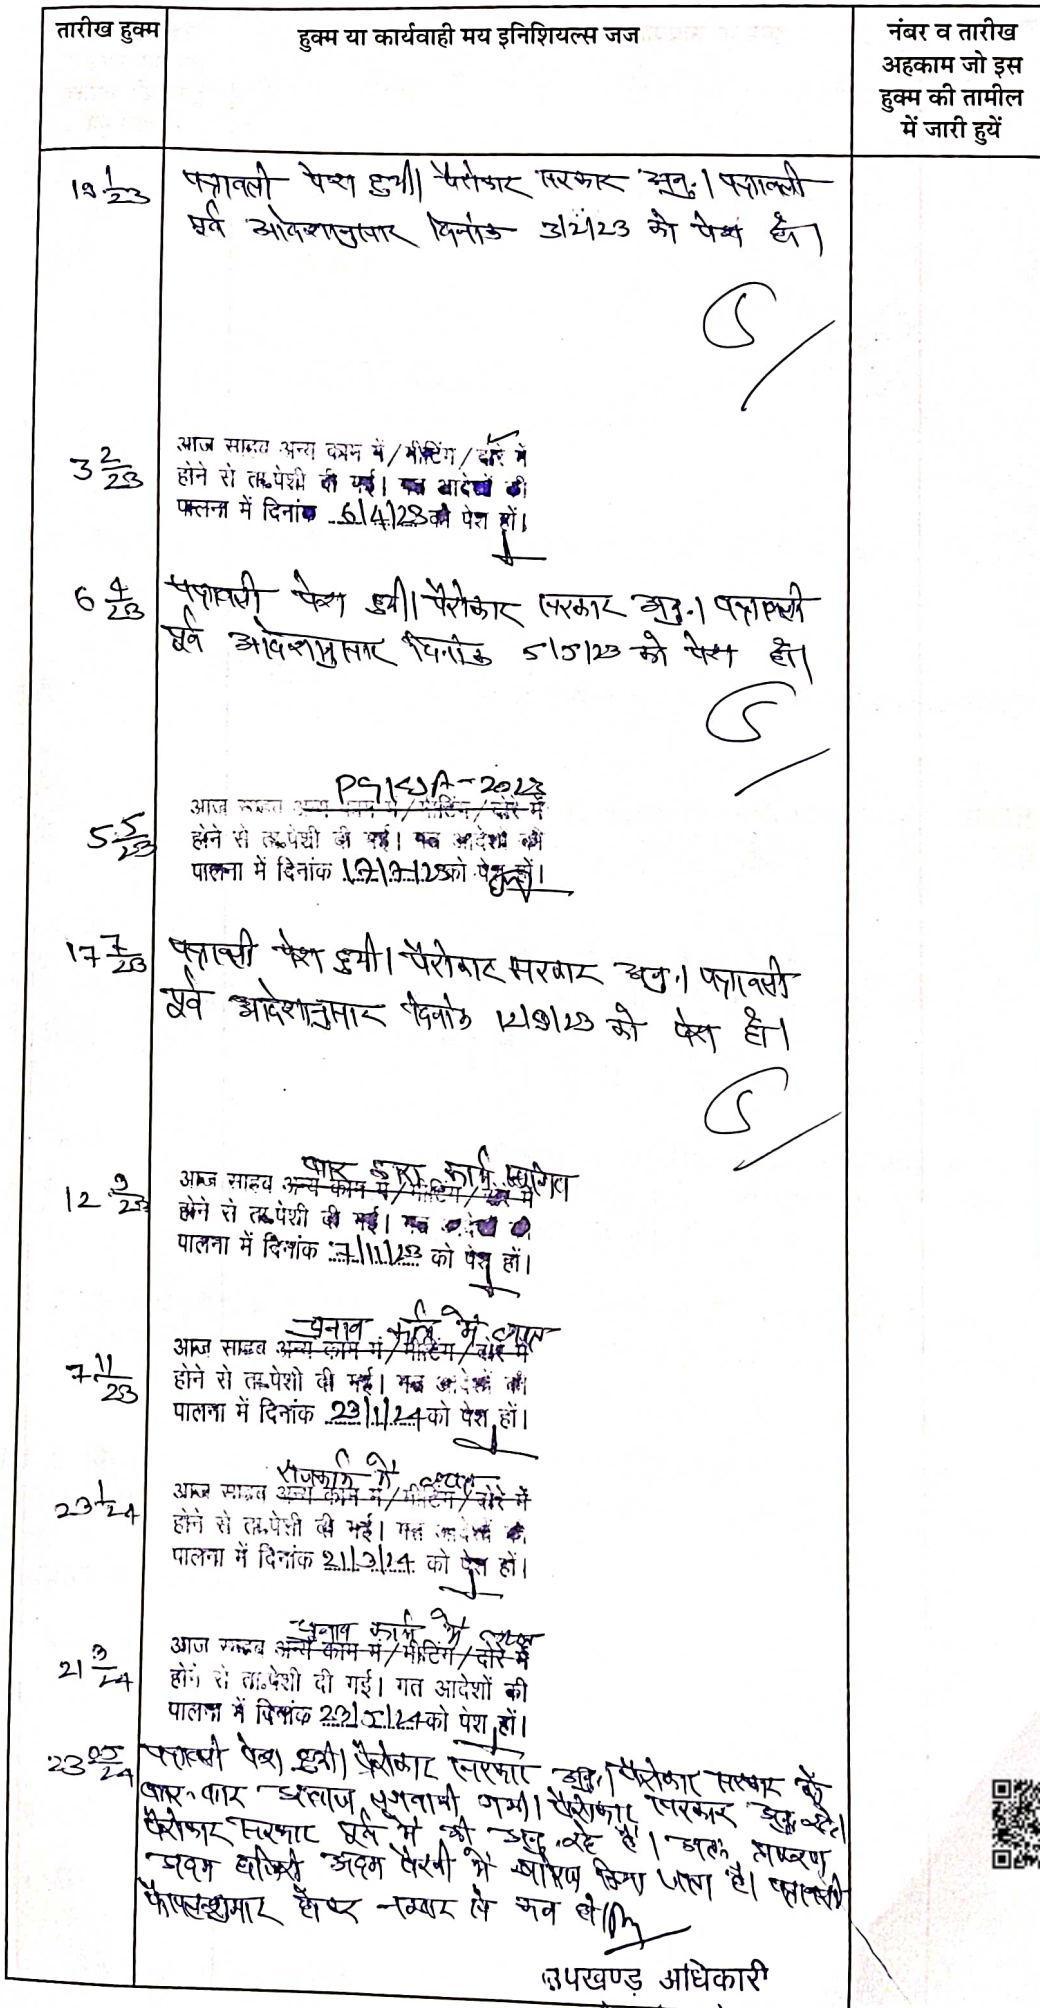 तारीख हुक्म
हुक्म या कार्यवाही मय इनिशियल्स जज
नंबर व तारीख
अहकाम जो इस
हुक्म की तामील
में जारी हुयें
19 1/23
पत्रावली पेश हुयी। पैरोकार सरकार अनु.। पत्रावली
पूर्व आदेशानुसार दिनांक 3/2/23 को पेश हो।
3 2/23
आज साहब अन्य काम में/मीटिंग/दौरे में
होने से ता.पेशी दी गई। गत आदेशों की
पालना में दिनांक 6/4/23 को पेश हों।
6 4/23
पत्रावली पेश हुयी। पैरोकार सरकार अनु.। पत्रावली
पूर्व आदेशानुसार दिनांक 5/5/23 को पेश हो।
5 5/23
आज साहब अन्य काम में/मीटिंग/दौरे में
होने से ता.पेशी दी गई। गत आदेशों की
पालना में दिनांक 17/7/23 को पेश हों।
17 7/23
पत्रावली पेश हुयी। पैरोकार सरकार अनु.। पत्रावली
पूर्व आदेशानुसार दिनांक 12/9/23 को पेश हो।
12 9/23
बार द्वारा कार्य स्थगित
आज साहब अन्य काम में/मीटिंग/दौरे में
होने से ता.पेशी दी गई। गत आदेशों की
पालना में दिनांक 7/11/23 को पेश हों।
7 11/23
चुनाव कार्य में व्यस्त
आज साहब अन्य काम में/मीटिंग/दौरे में
होने से ता.पेशी दी गई। गत आदेशों की
पालना में दिनांक 23/1/24 को पेश हों।
23 1/24
राजकार्य में व्यस्त
आज साहब अन्य काम में/मीटिंग/दौरे में
होने से ता.पेशी दी गई। गत आदेशों की
पालना में दिनांक 21/3/24 को पेश हों।
21 3/24
चुनाव कार्य में व्यस्त
आज साहब अन्य काम में/मीटिंग/दौरे में
होने से ता.पेशी दी गई। गत आदेशों की
पालना में दिनांक 23/5/24 को पेश हों।
23 05/24
पत्रावली पेश हुयी। पैरोकार सरकार अनु.। पैरोकार सरकार को
बार-बार आवाज लगवायी गयी। पैरोकार सरकार अनु. रहे।
पैरोकार सरकार पूर्व में भी अनु. रहे है। अतः प्रकरण
अदम हाजिरी अदम पैरवी में खारिज किया जाता है। पत्रावली
फैसलशुमार होकर नम्बर से कम हो।
उपखण्ड अधिकारी